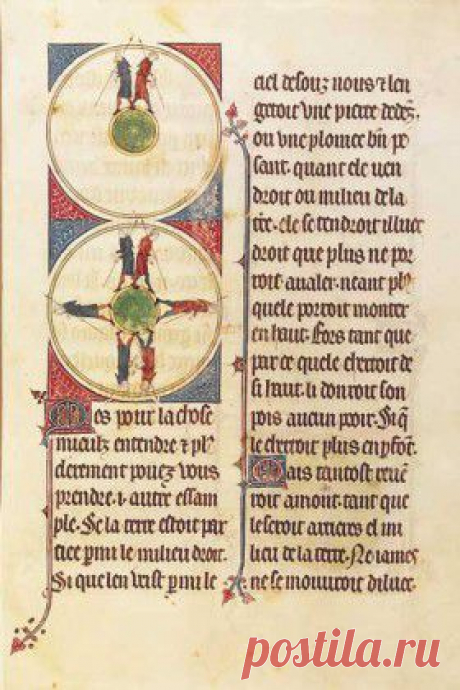 Mes pour la chose
mieulz entendre ⁊ pl⁹
clerement pouez vous
prendre .i. autre essam
ple. Se la terre estoit par
ciee p̱mi le milieu droit.
Si que len veist p̱mi le
ciel desouz nous ⁊ len
getoit vne pierre dedẽz.
ou vne plomee bñ pe
sant. quant ele uen
droit ou milieu de la
t̃re. ele se tendroit illuec
droit que plus ne por
roit avaler. neant pl⁹
quele porroit monter
en haut. Fors tant que
par ce quele cherroit de
si haut. li donroit son
pois aucun pooir. Si q̃
le cherroit plus en pfõt.
Mais tantost reuẽ
roit amont. tant que
le seroit arrieres el mi
lieu de la terre. Ne iames
ne se mouuroit diluec.
postila.ru